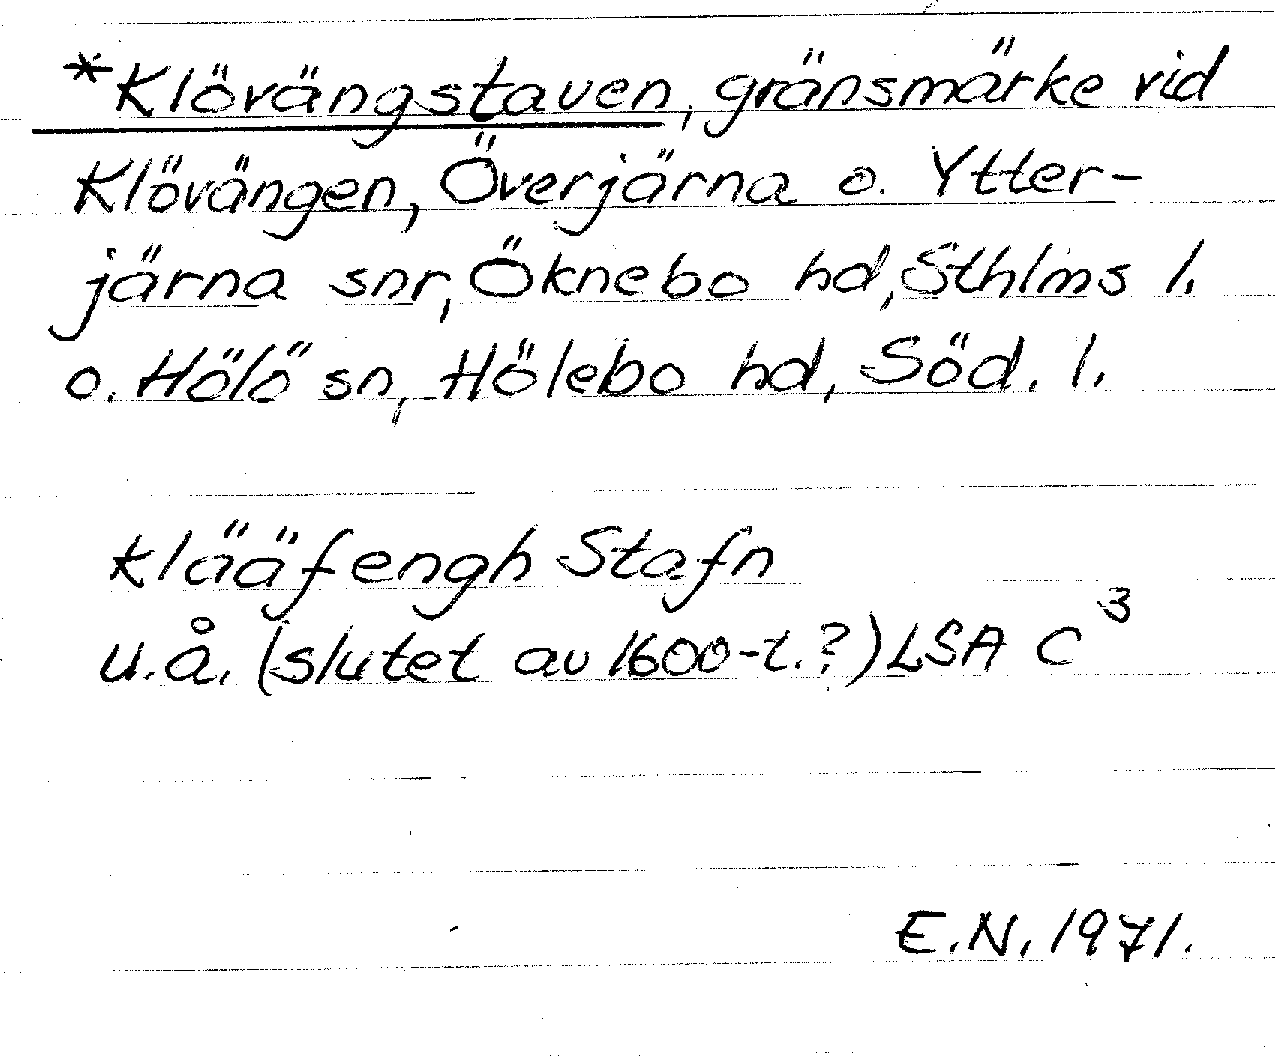 *Klövängstaven, gränsmärke vid
Klövängen, Överjärna o. Ytter-
järna snr, Öknebo hd, Sthlms l.
o. Hölö sn, Hölebo hd, Söd. l.
klääfengh Stafn
u.å. (slutet av 1600-t.?) LSA C³
E.N. 1971.